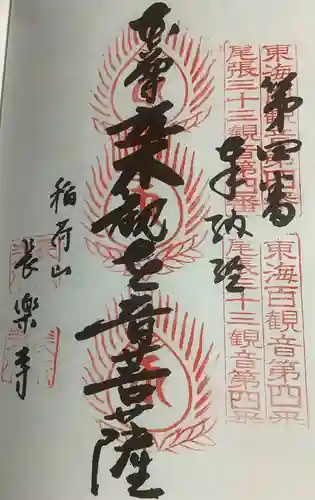 東海百観音第四番
尾張三十三観音第四番
東海百観音第四番
尾張三十三観音第四番
第四番
奉納経
本尊
観世音菩薩
稲荷山
長樂寺